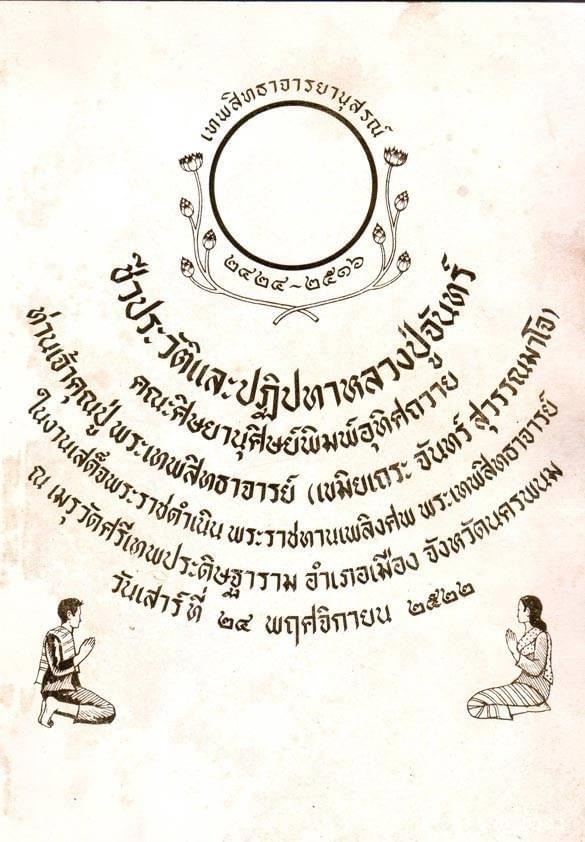 เทพสิทธาจารยานุสรณ์
๒๔๒๔~๒๕๑๖
ชีวประวัติและปฏิปทาหลวงปู่จันทร์
คณะศิษยานุศิษย์พิมพ์อุทิศถวาย
ท่านเจ้าคุณปู่ พระเทพสิทธาจารย์ (เขมิยเถระ จันทร์ สุวรรณมาโจ)
ในงานเสด็จพระราชดำเนิน พระราชทานเพลิงศพ พระเทพสิทธาจารย์
ณ เมรุวัดศรีเทพประดิษฐาราม อำเภอเมือง จังหวัดนครพนม
วันเสาร์ที่ ๒๔ พฤศจิกายน ๒๕๒๒